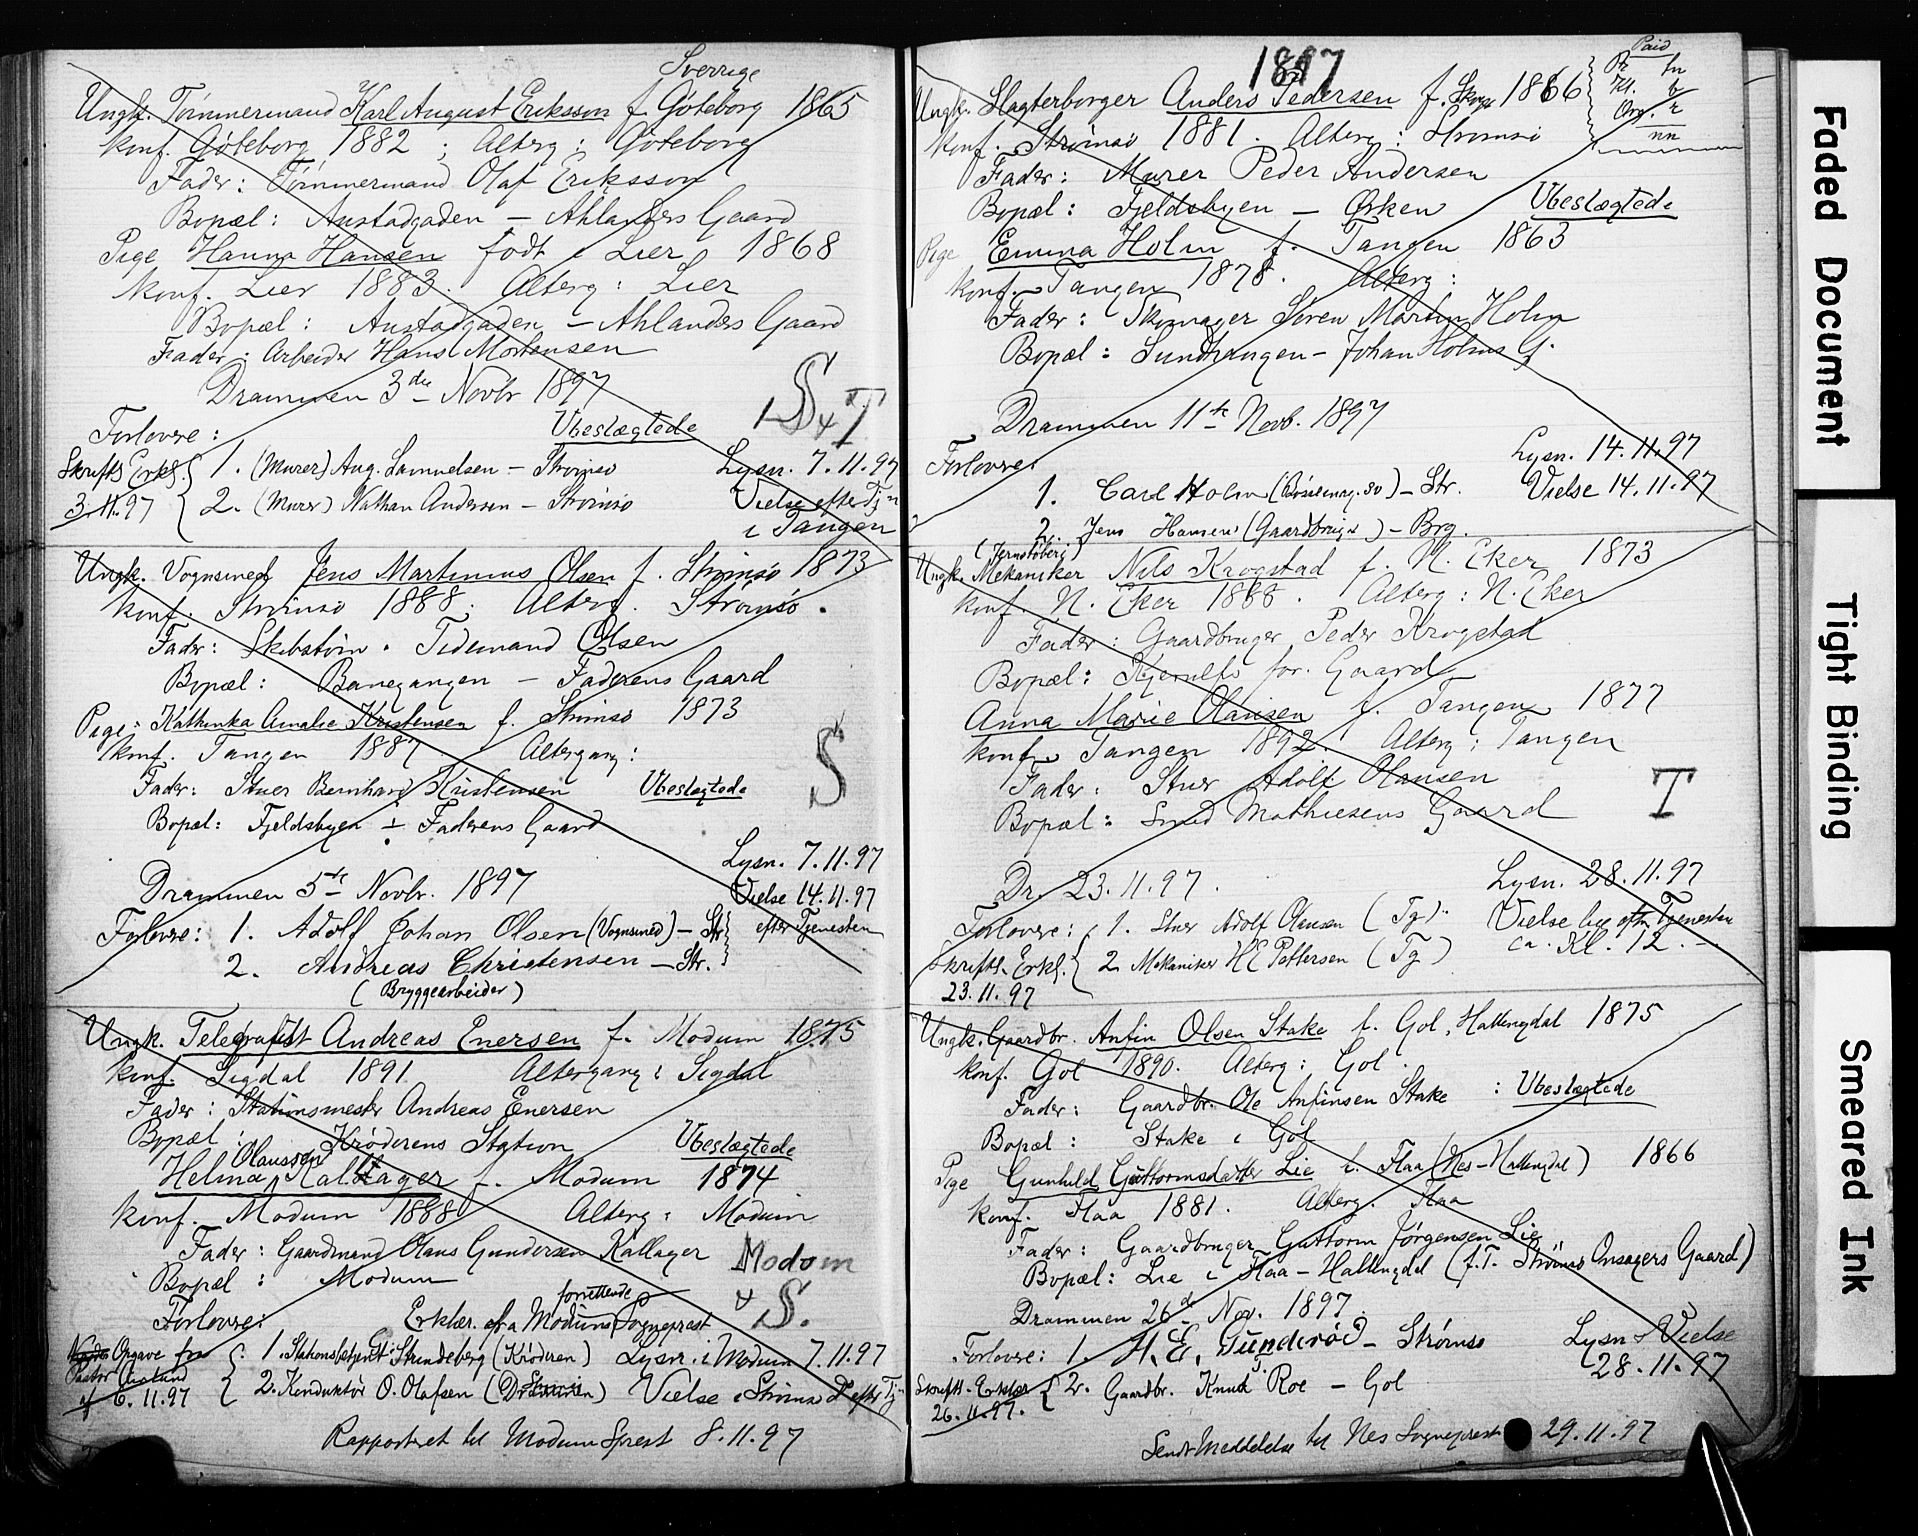 Sverrige
Ungk. Tømmermand Karl August Eriksson f. Göteborg 1865
Konf. Göteborg 1882 ; Alterg : Göteborg
Fader : Tømmermand Olaf Eriksson
Bopæl : Austadgaden – Ahlanders Gaard
Pige Hanna Hansen født i Lier 1868
Konf. Lier 1883. Alterg : Lier
Bopæl : Austadgaden – Ahlanders Gaard
Fader : Arbeider Hans Mortensen
Drammen 3die Novbr 1897
S + T
Forlovere : Ubeslægtede
Skriftl. Erkl. 3.11.97
1. (Murer) Aug. Samuelsen – Strømsø Lysn. 7.11.97
2. (Murer) Nathan Andersen – Strømsø Vielse efter Tjn
i Tangen
Ungk. Vognsmed Jens Martinius Olsen f. Strømsø 1873
Konf. Strømsø 1888. Alterg. Strømsø.
Fader : Skibstøm. Tidemand Olsen
Bopæl : Banegangen – Faderens Gaard
Pige : Kathinka Amalie Kristensen f. Strømsø 1873
Konf. Tangen 1887 Altergang :
S
Fader : Stuer Bernhard Kristensen Ubeslægtede
Bopæl : Fjeldsbyen – Faderens Gaard
Lysn. 7.11.97
Drammen 5te Novbr. 1897 Vielse 14.11.97
efter Tjenesten
Forlovere : 1. Adolf Johan Olsen (Vognsmed) – Str
2. Andreas Christensen – Str.
(Bryggearbeider)
Ungk. Telegrafist Andreas Enersen f. Modum 1875
Konf. Sigdal 1891 Altergang : Sigdal
Fader : Stationsmester Andreas Enersen
Bopæl : Krøderens Station Ubeslægtede
Olaussen
Helma Kallager f. Modum 1874
Konf. Modum 1888 Alterg : Modum
Fader : Gaardmand Olaus Gundersen Kallager
Modum
Bopæl : Modum
+ S.
forrettende
Forlovere : Erklær. fra Modums Sogneprest
Opgave fra Pastor af 6.11.97
1. Stationsbetjent Strindeberg (Krøderen) Lysn. i Modum 7.11.97
2. Konduktør O. Olafsen (Drammen) Vielse i Strømsø efter Tj
Rapporteret til Modum Sprest 8.11.97
1897
Paid
Ungk. Slagterborger Anders Pedersen f. Skoger 1866
Konf. Strømsø 1881. Alterg : Strømsø
Fader : Murer Peder Andersen
Bopæl : Fjeldsbyen – Ørken Ubeslægtede
Pige Emma Holm f. Tangen 1863
Konf. Tangen 1878. Alterg :
Fader : Skomager Søren Martin Holm
Bopæl : Sundhaugen – Johan Holms G.
Drammen 11te Novb. 1897
Lysn. 14.11.97
Forlovere :
1. Carl Holm (Bøssemag. sv) – Str. Vielse 14.11.97
2. Jens Hansen (Gaardbruger) – Brg.
(Jernstøberi)
Ungk. Mekaniker Nils Krogstad f. N. Eker 1873
Konf. N. Eker 1888. Alterg : N. Eker
Fader : Gaardbruger Peder Krogstad
Bopæl : Kjerulfs for. Gaard
Anna Marie Olausen f. Tangen 1877
Konf. Tangen 1892. Alterg : Tangen
Fader : Stuer Adolf Olausen
T
Bopæl : Smed Mathiesens Gaard
Dr. 23.11.97. Lysn. 28.11.97
Forlovere : 1. Stuer Adolf Olausen (Tg). Vielse lige efter Tjenesten
ca. Kl. 12. –
Skriftl. Erkl. 23.11.97
2. Mekaniker H E Pettersen (Tg)
Ungk. Gaardbr. Anfin Olsen Stake f. Gol, Hallingdal 1875
Konf. Gol 1890. Alterg : Gol.
Fader : Gaardbr. Ole Anfinsen Stake : Ubeslægtede
Bopæl : Stake i Gol
Pige Gunhild Guttormsdatter Lie f. Flaa (Nes – Hallingdal) 1866
Konf. Flaa 1881. Alterg. Flaa
Fader : Gaardbruger Guttorm Jørgensen Lie
Bopæl : Lie i Flaa – Hallingdal (f.T. Strømsø Onsagers Gaard)
Drammen 26de Nov. 1897.
Forlovere : 1. H. E. Gunderød – Strømsø Lysn & Vielse
28.11.97
Skriftl. Erklær 26.11.97.
2. Gaardbr. Knud T. Roe – Gol
Sendt Meddelelse til Nes Sogneprest 29.11.97
Faded Document
Tight Binding
Smeared Ink